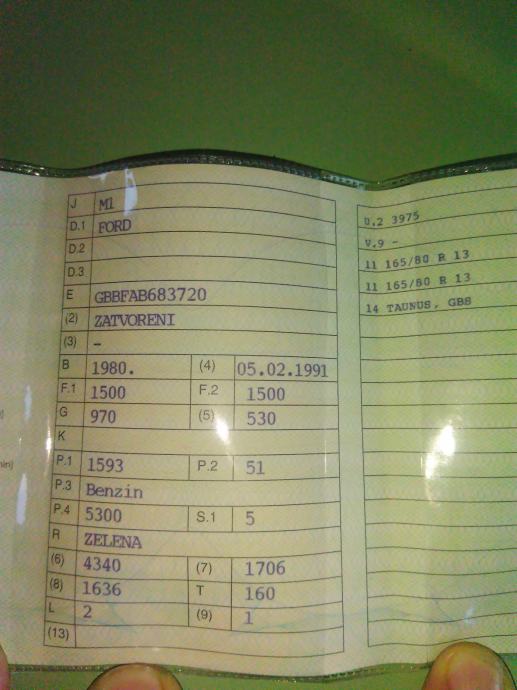 J M1
D.1 FORD
D.2
D.3
E GBBFAB683720
(2) ZATVORENI
(3) -
B 1980. (4) 05.02.1991
F.1 1500 F.2 1500
G 970 (5) 530
K
P.1 1593 P.2 51
P.3 Benzin
P.4 5300 S.1 5
R ZELENA
(6) 4340 (7) 1706
(8) 1636 T 160
L 2 (9) 1
(13)
D.2 3975
V.9 -
11 165/80 R 13
11 165/80 R 13
14 TAUNUS, GBS